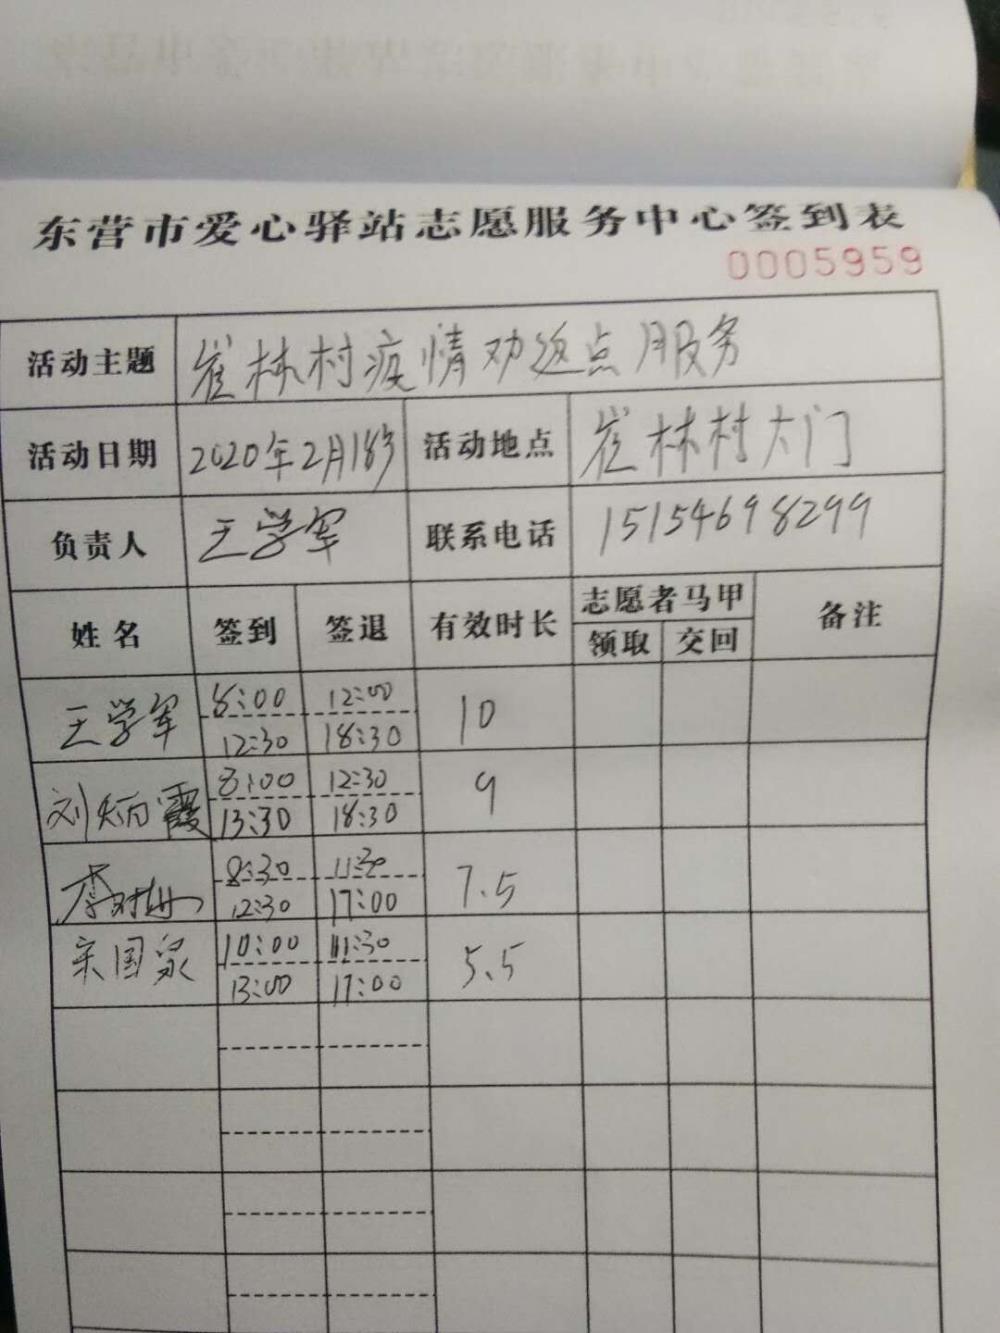 东营市爱心驿站志愿服务中心签到表
0005959
活动主题 崔林村疫情劝返点服务
活动日期 2020年2月18号 活动地点 崔林村大门
负责人 王学军 联系电话 15154698299
姓名 签到 签退 有效时长 志愿者马甲 备注
领取 交回
王学军 8:00 12:00 10
12:30 18:30
刘炳霞 8:00 12:30 9
13:30 18:30
李 8:30 11:30 7.5
12:30 17:00
宋国泉 10:00 11:30 5.5
13:00 17:00